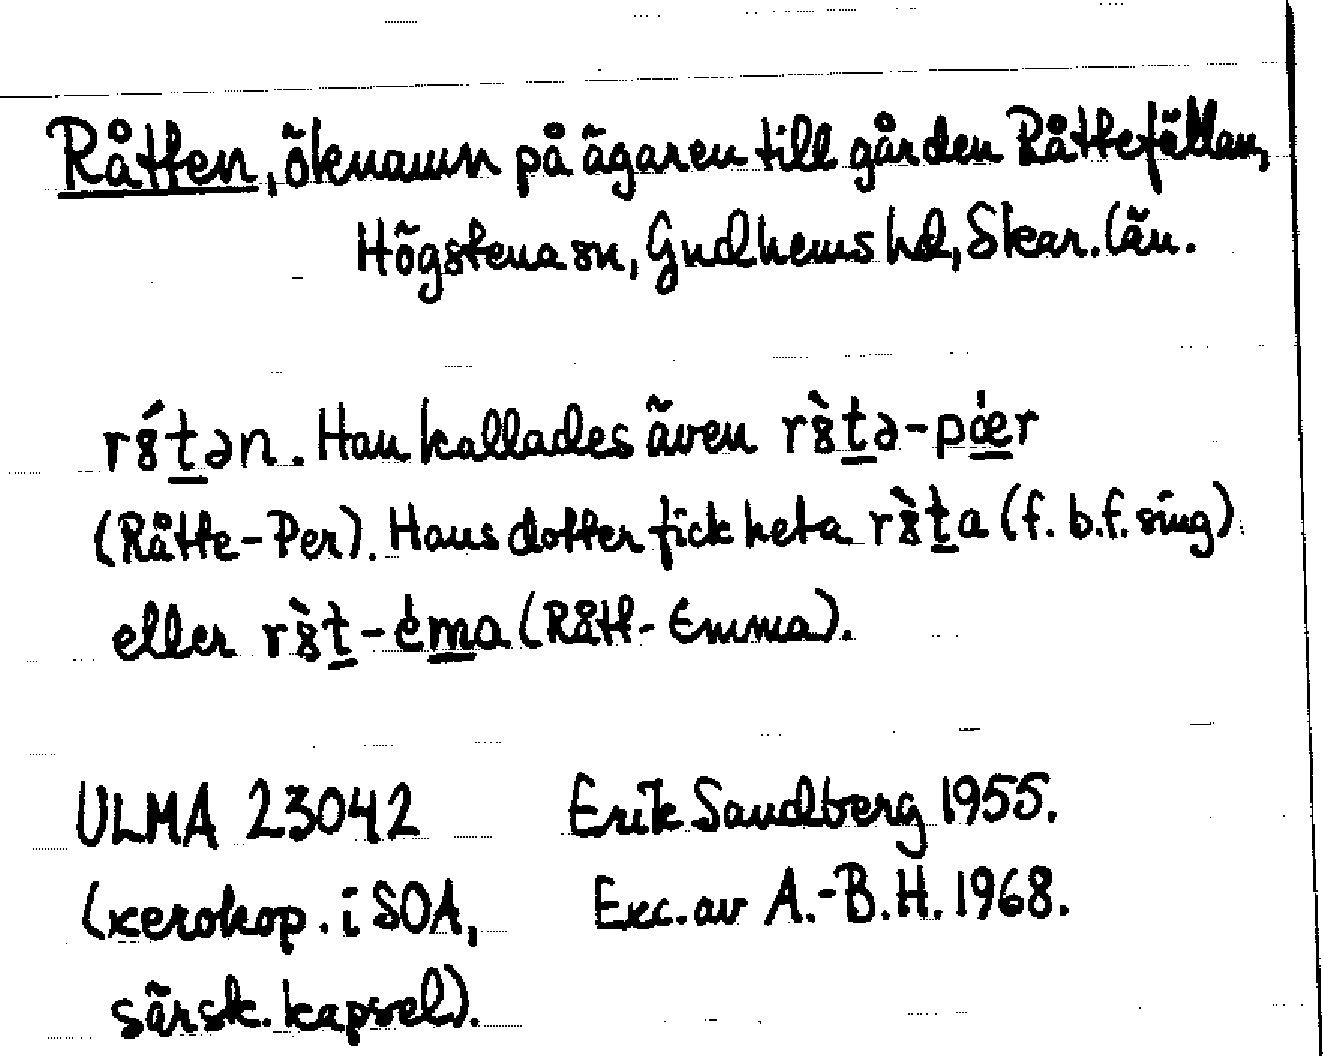 Råtten, öknamn på ägaren till gården Råttefällan,
Högstena sn, Gudhems hd, Skar. län.
rȣ́tən. Han kallades även rȣ̀tə-pœ́r
(Råtte-Per). Hans dotter fick heta rȣ̀ta (f. b.f. sing)
eller rȣ̀t-èma (Rått-Emma).
ULMA 23042 Erik Sandberg 1955.
(xerokop. i SOA, Exc. av A.-B.H. 1968.
särsk. kapsel).